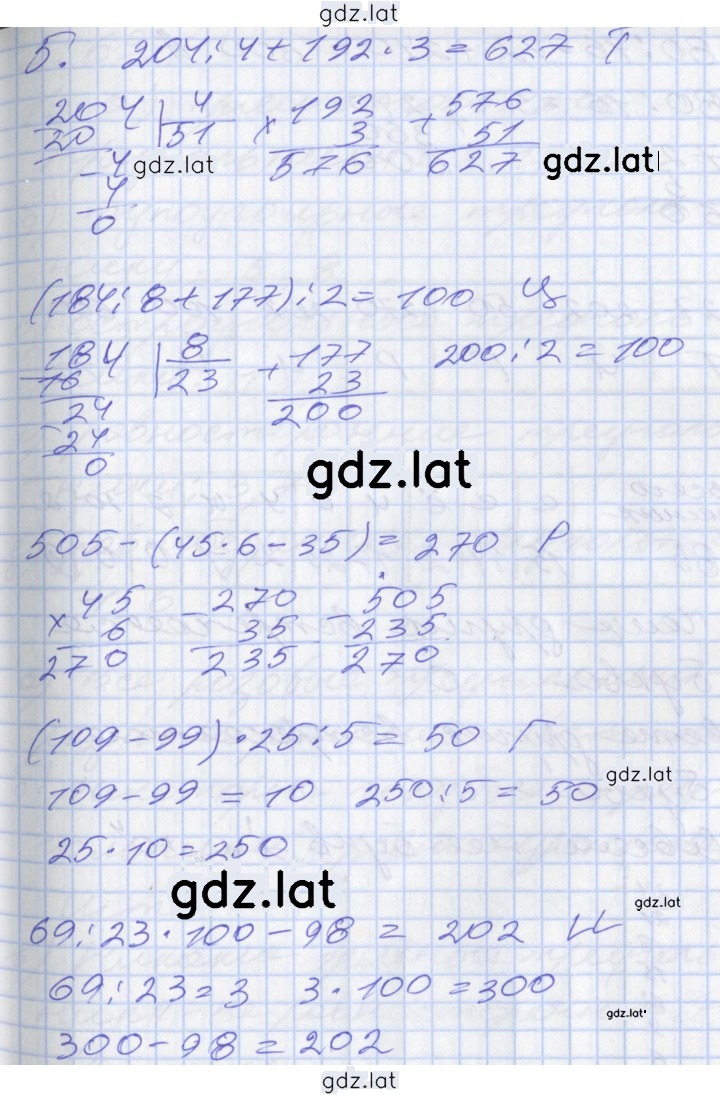 gdz.lat
5. 204 : 4 + 192 · 3 = 627 Т
204 | 4 × 192 + 576
20 51 3 51
- 4 gdz.lat 576 627 gdz.lat
4
0
(184 : 8 + 177) : 2 = 100 Ц
184 | 8 + 177 200 : 2 = 100
- 16 23 23
24 200
- 24
0
gdz.lat
505 - (45 · 6 - 35) = 270 Р
× 45 - 270 - 505
6 35 235
270 235 270
(109 - 99) · 25 : 5 = 50 Г
gdz.lat
109 - 99 = 10 250 : 5 = 50
25 · 10 = 250
gdz.lat
gdz.lat
69 : 23 · 100 - 98 = 202 И
69 : 23 = 3 3 · 100 = 300
gdz.lat
300 - 98 = 202
gdz.lat